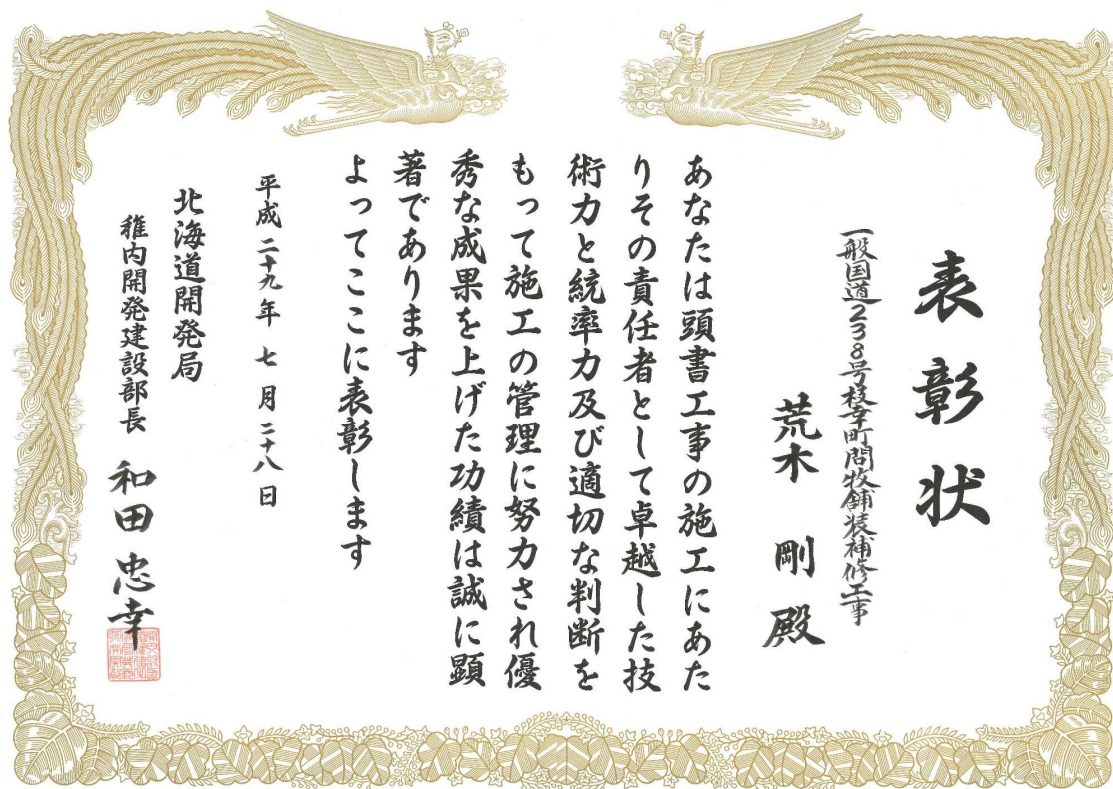 表彰状
一般国道238号枝幸町問牧舗装補修工事
荒木 剛 殿
あなたは頭書工事の施工にあた
りその責任者として卓越した技
術力と統率力及び適切な判断を
もって施工の管理に努力され優
秀な成果を上げた功績は誠に顕
著であります
よってここに表彰します
平成二十九年 七月二十八日
北海道開発局
稚内開発建設部長 和田忠幸